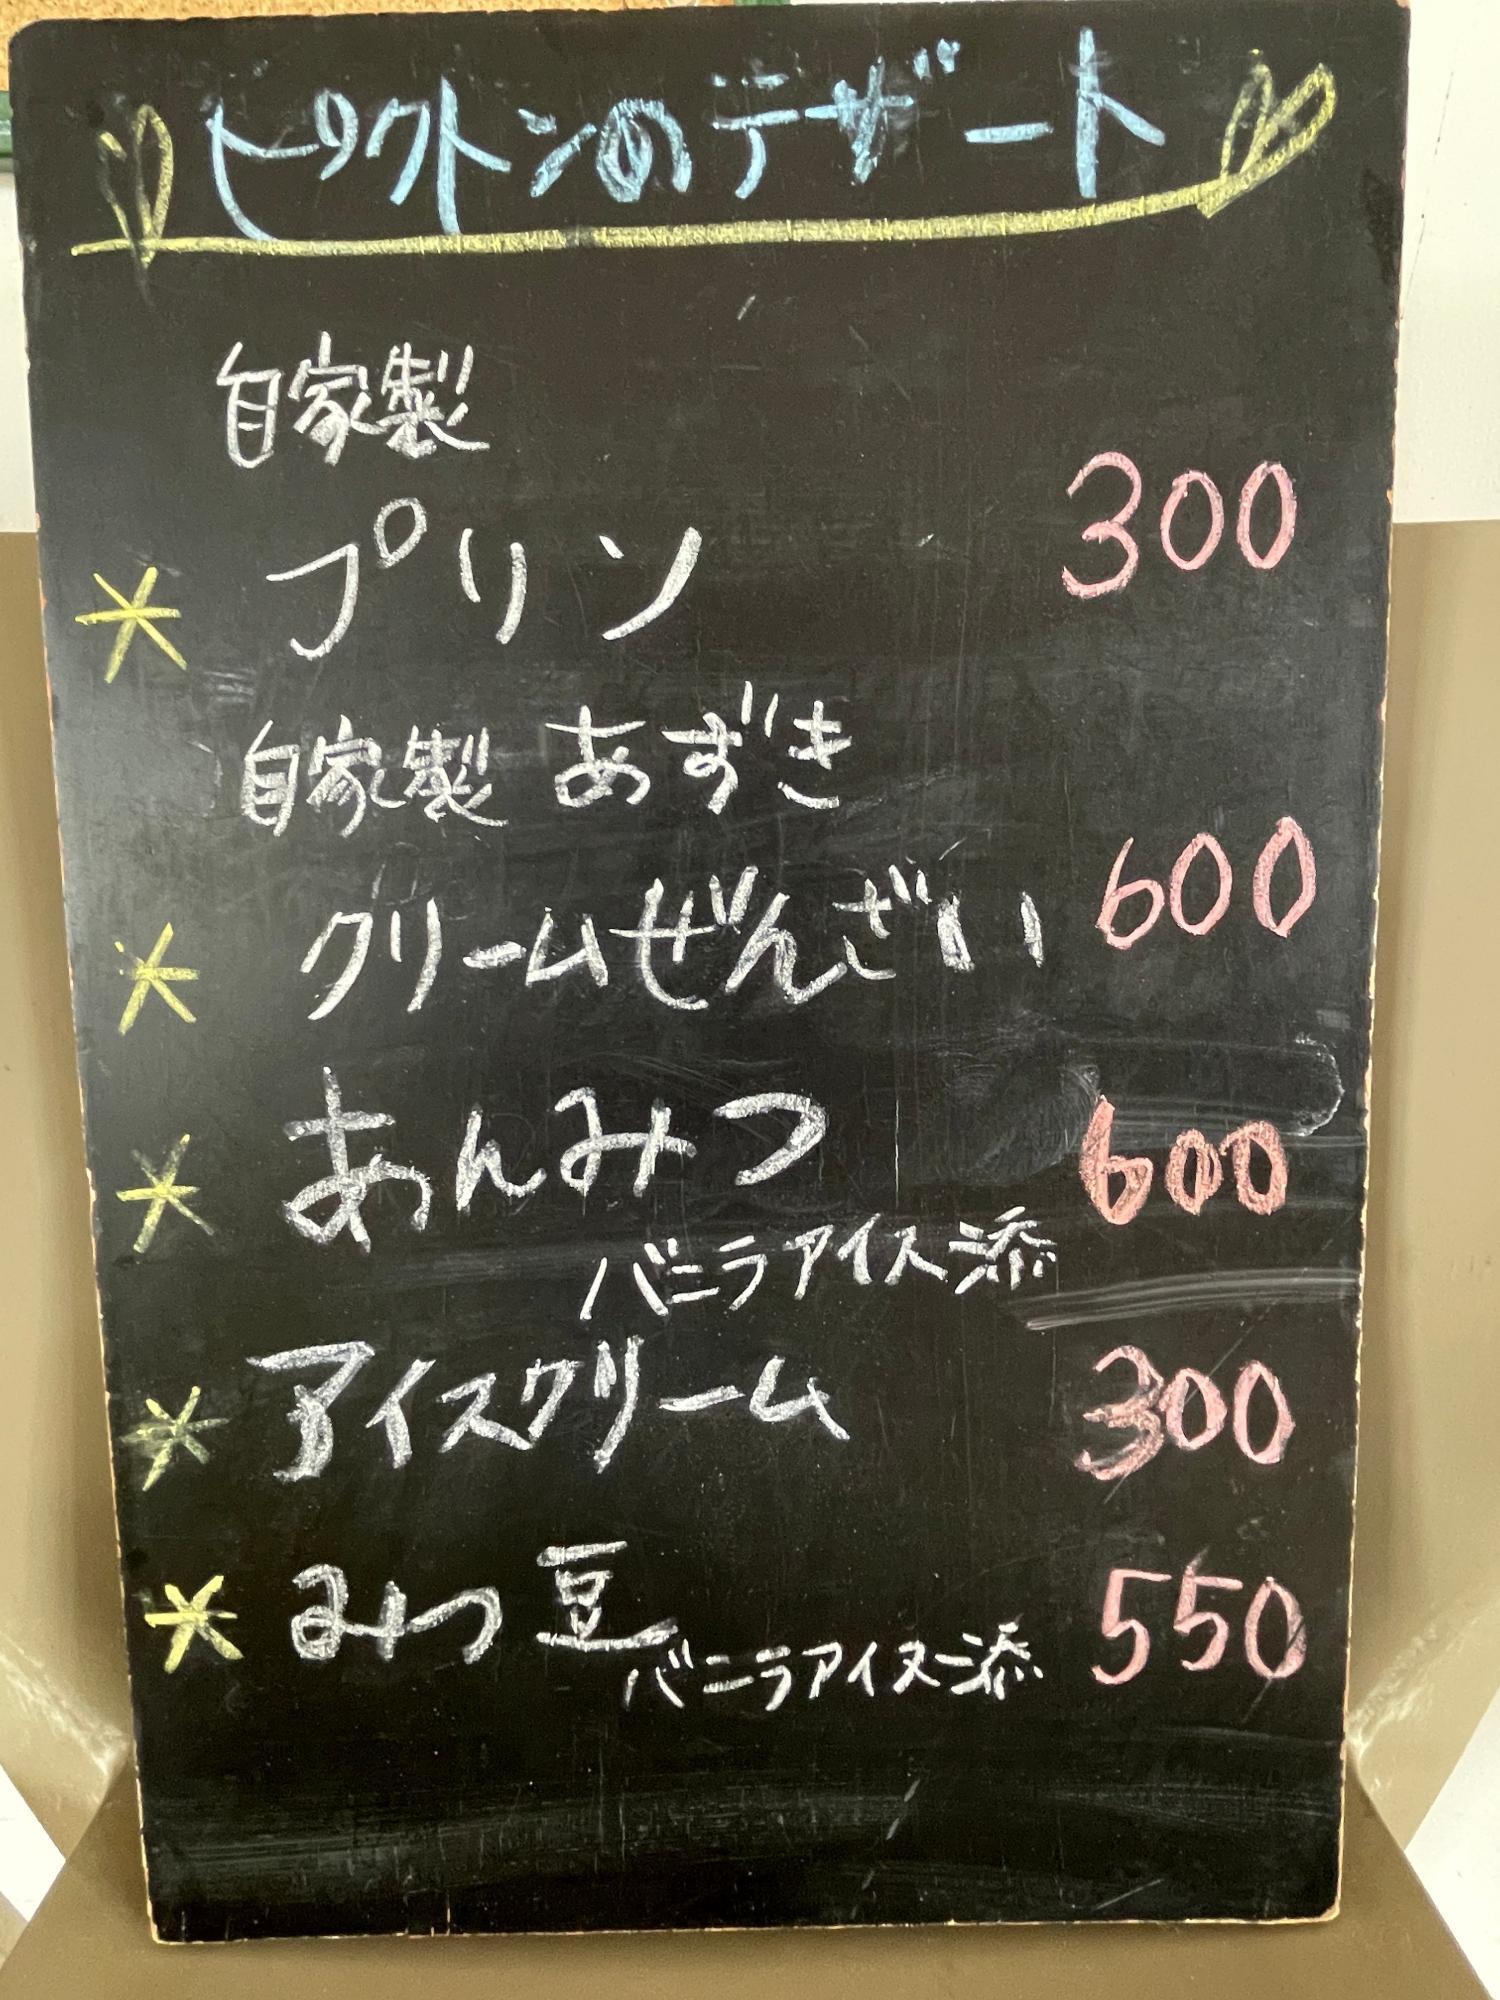 ピクトンのデザート
自家製
プリン 300
自家製 あずき
クリームぜんざい 600
あんみつ 600
バニラアイス添
アイスクリーム 300
みつ豆 550
バニラアイス添